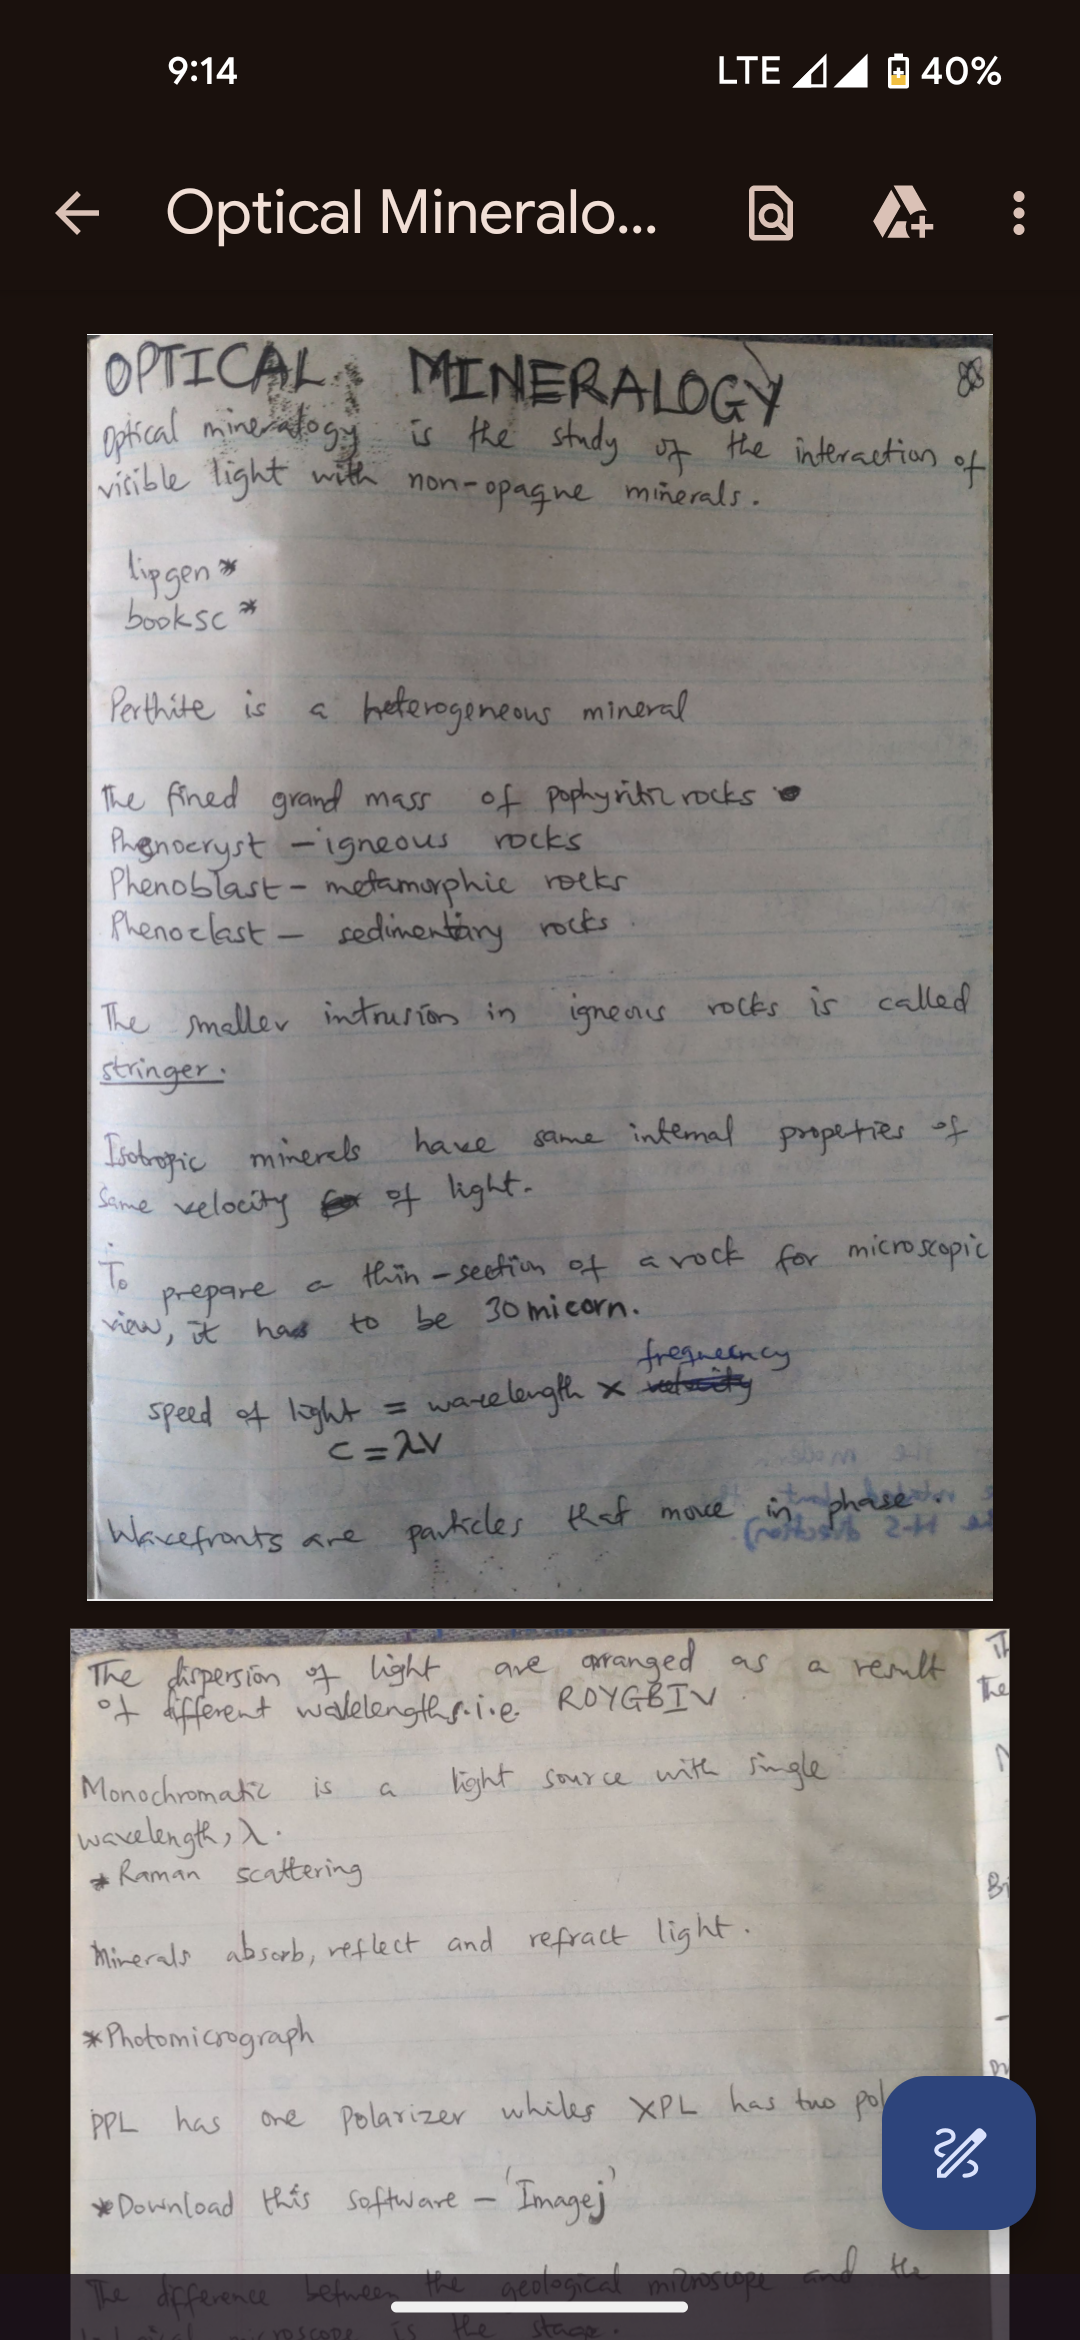 9:14
LTE 40%
Optical Mineralo...
OPTICAL MINERALOGY
Optical mineralogy is the study of the interaction of
visible light with non-opaque minerals.
lipgen*
booksc*
Perthite is a heterogeneous mineral
The fined grand mass of pophyritic rocks
Phenocryst - igneous rocks
Phenoblast - metamorphic rocks
Phenoclast - sedimentary rocks
The smaller intrusion in igneous rocks is called
stringer.
Isotropic minerals have same internal properties of
same velocity of light.
To prepare a thin-section of a rock for microscopic
view, it has to be 30 micorn.
frequency
speed of light = wavelength × velocity
c = λv
Wavefronts are particles that move in phase.
The dispersion of light are arranged as a result
of different wavelengths.i.e. ROYGBIV
Monochromatic is a light source with single
wavelength, λ.
* Raman scattering
Minerals absorb, reflect and refract light.
*Photomicrograph
PPL has one polarizer whiles XPL has two pol
*Download this software - 'Imagej'
The difference between the geological microscope and the
microscope is the stage.